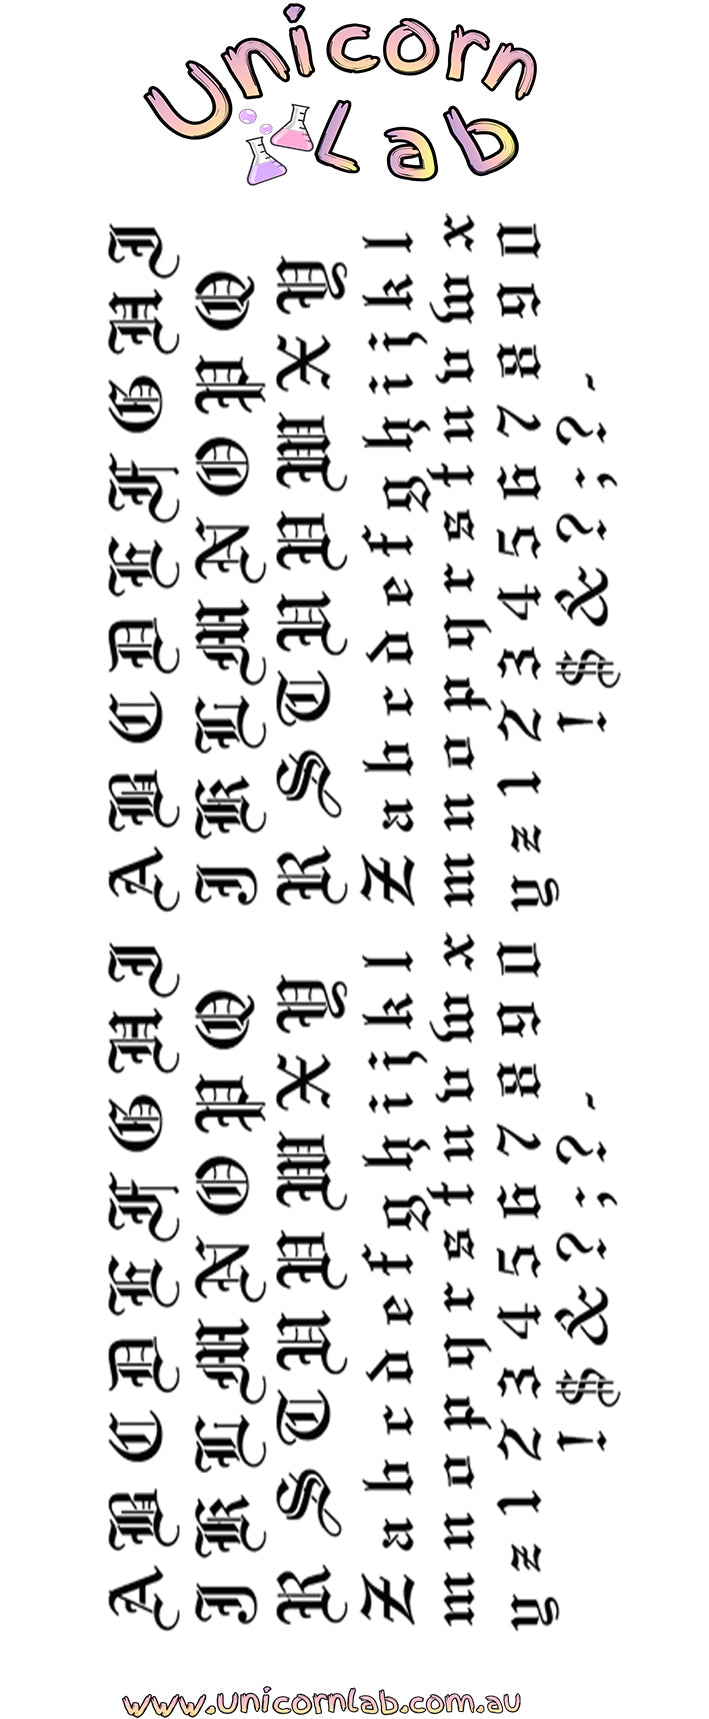 Unicorn
Lab
A B C D E F G H I
J K L M N O P Q
R S T U V W X Y
Z a b c d e f g h i j k l
m n o p q r s t u v w x
y z 1 2 3 4 5 6 7 8 9 0
! $ & ? ; ? -
A B C D E F G H I
J K L M N O P Q
R S T U V W X Y
Z a b c d e f g h i j k l
m n o p q r s t u v w x
y z 1 2 3 4 5 6 7 8 9 0
! $ & ? ; ? -
www.unicornlab.com.au